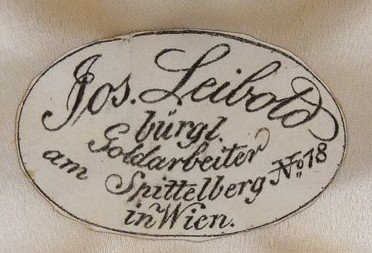 Jos. Leibold
bürgl.
Goldarbeiter
am Spittelberg No. 18
in Wien.